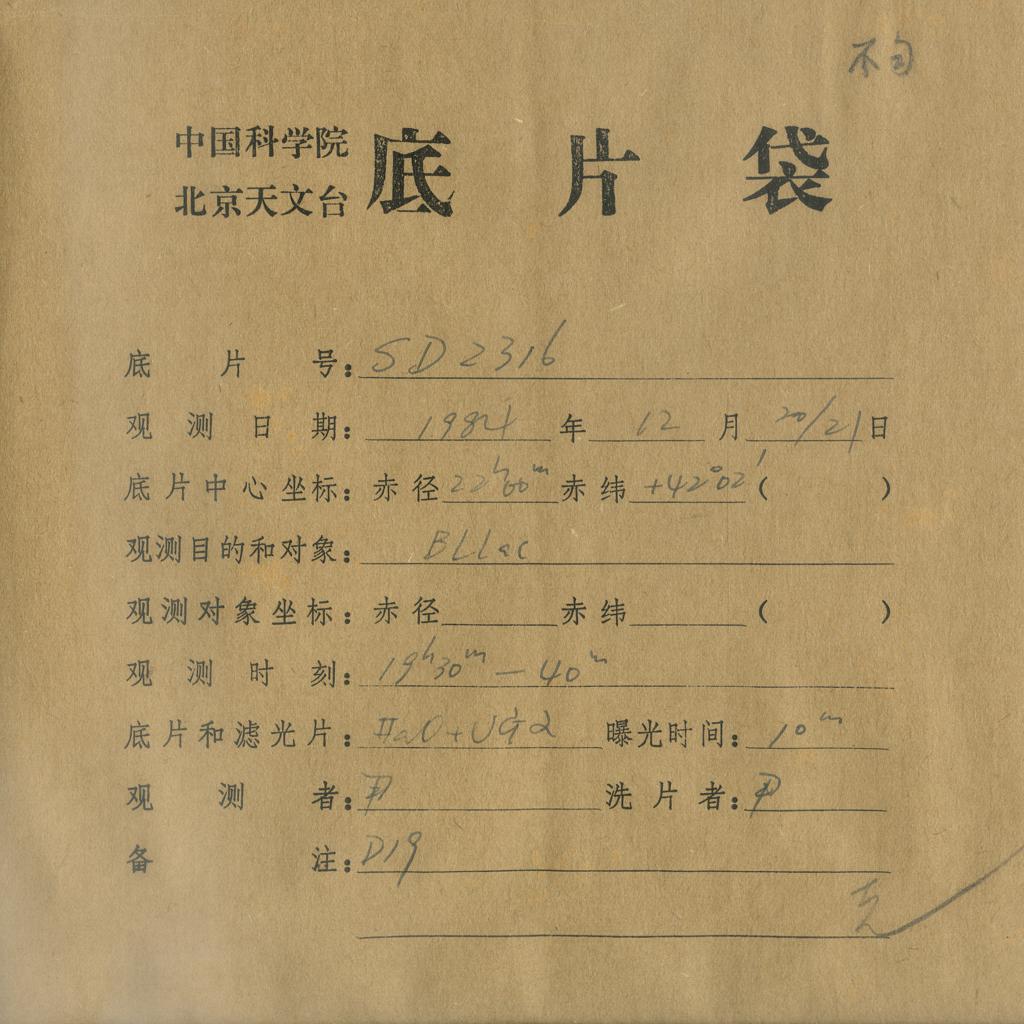 不匀
中国科学院
北京天文台
底片袋
底片号：SD2316
观测日期：1984年12月20/21日
底片中心坐标：赤径22ʰ00ᵐ赤纬+42°02′（ ）
观测目的和对象：BLLac
观测对象坐标：赤径 赤纬 （ ）
观测时刻：19ʰ30ᵐ—40ᵐ
底片和滤光片：IIaO+UG2 曝光时间：10ᵐ
观测者：尹 洗片者：尹
备注：D19